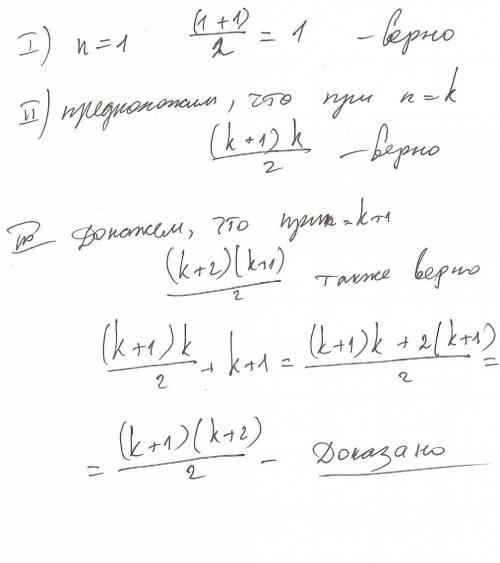 I) n=1 (1+1)/2 = 1 – верно
II) предположим, что при n=k
(k+1)k/2 – верно
III Докажем, что при n=k+1
(k+2)(k+1)/2 также верно
(k+1)k/2 + k+1 = ((k+1)k + 2(k+1))/2 =
= (k+1)(k+2)/2 – Доказано